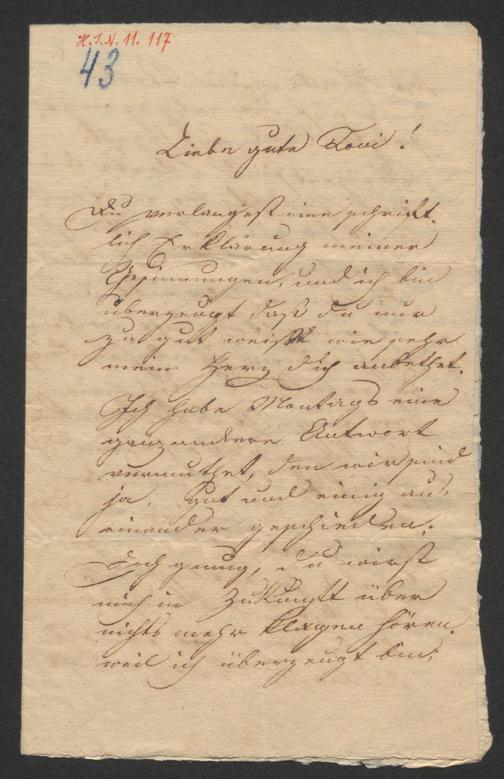 H.I.N. 11. 117
43
Liebe gute Toni!
Du verlangest eine schrift-
lich Erklärung meiner
Gesinnungen, und ich bin
überzeugt daß du nur
zu gut weißt wie sehr
mein Herz dich anbethet.
Ich habe Montags eine
ganz andere Antwort
vermuthet, den wir sind
ja, gut und einig aus-
einander geschieden.
Doch genug, du wirst
mich in Zukunft über
nichts mehr klagen hören.
weil ich überzeugt bin,